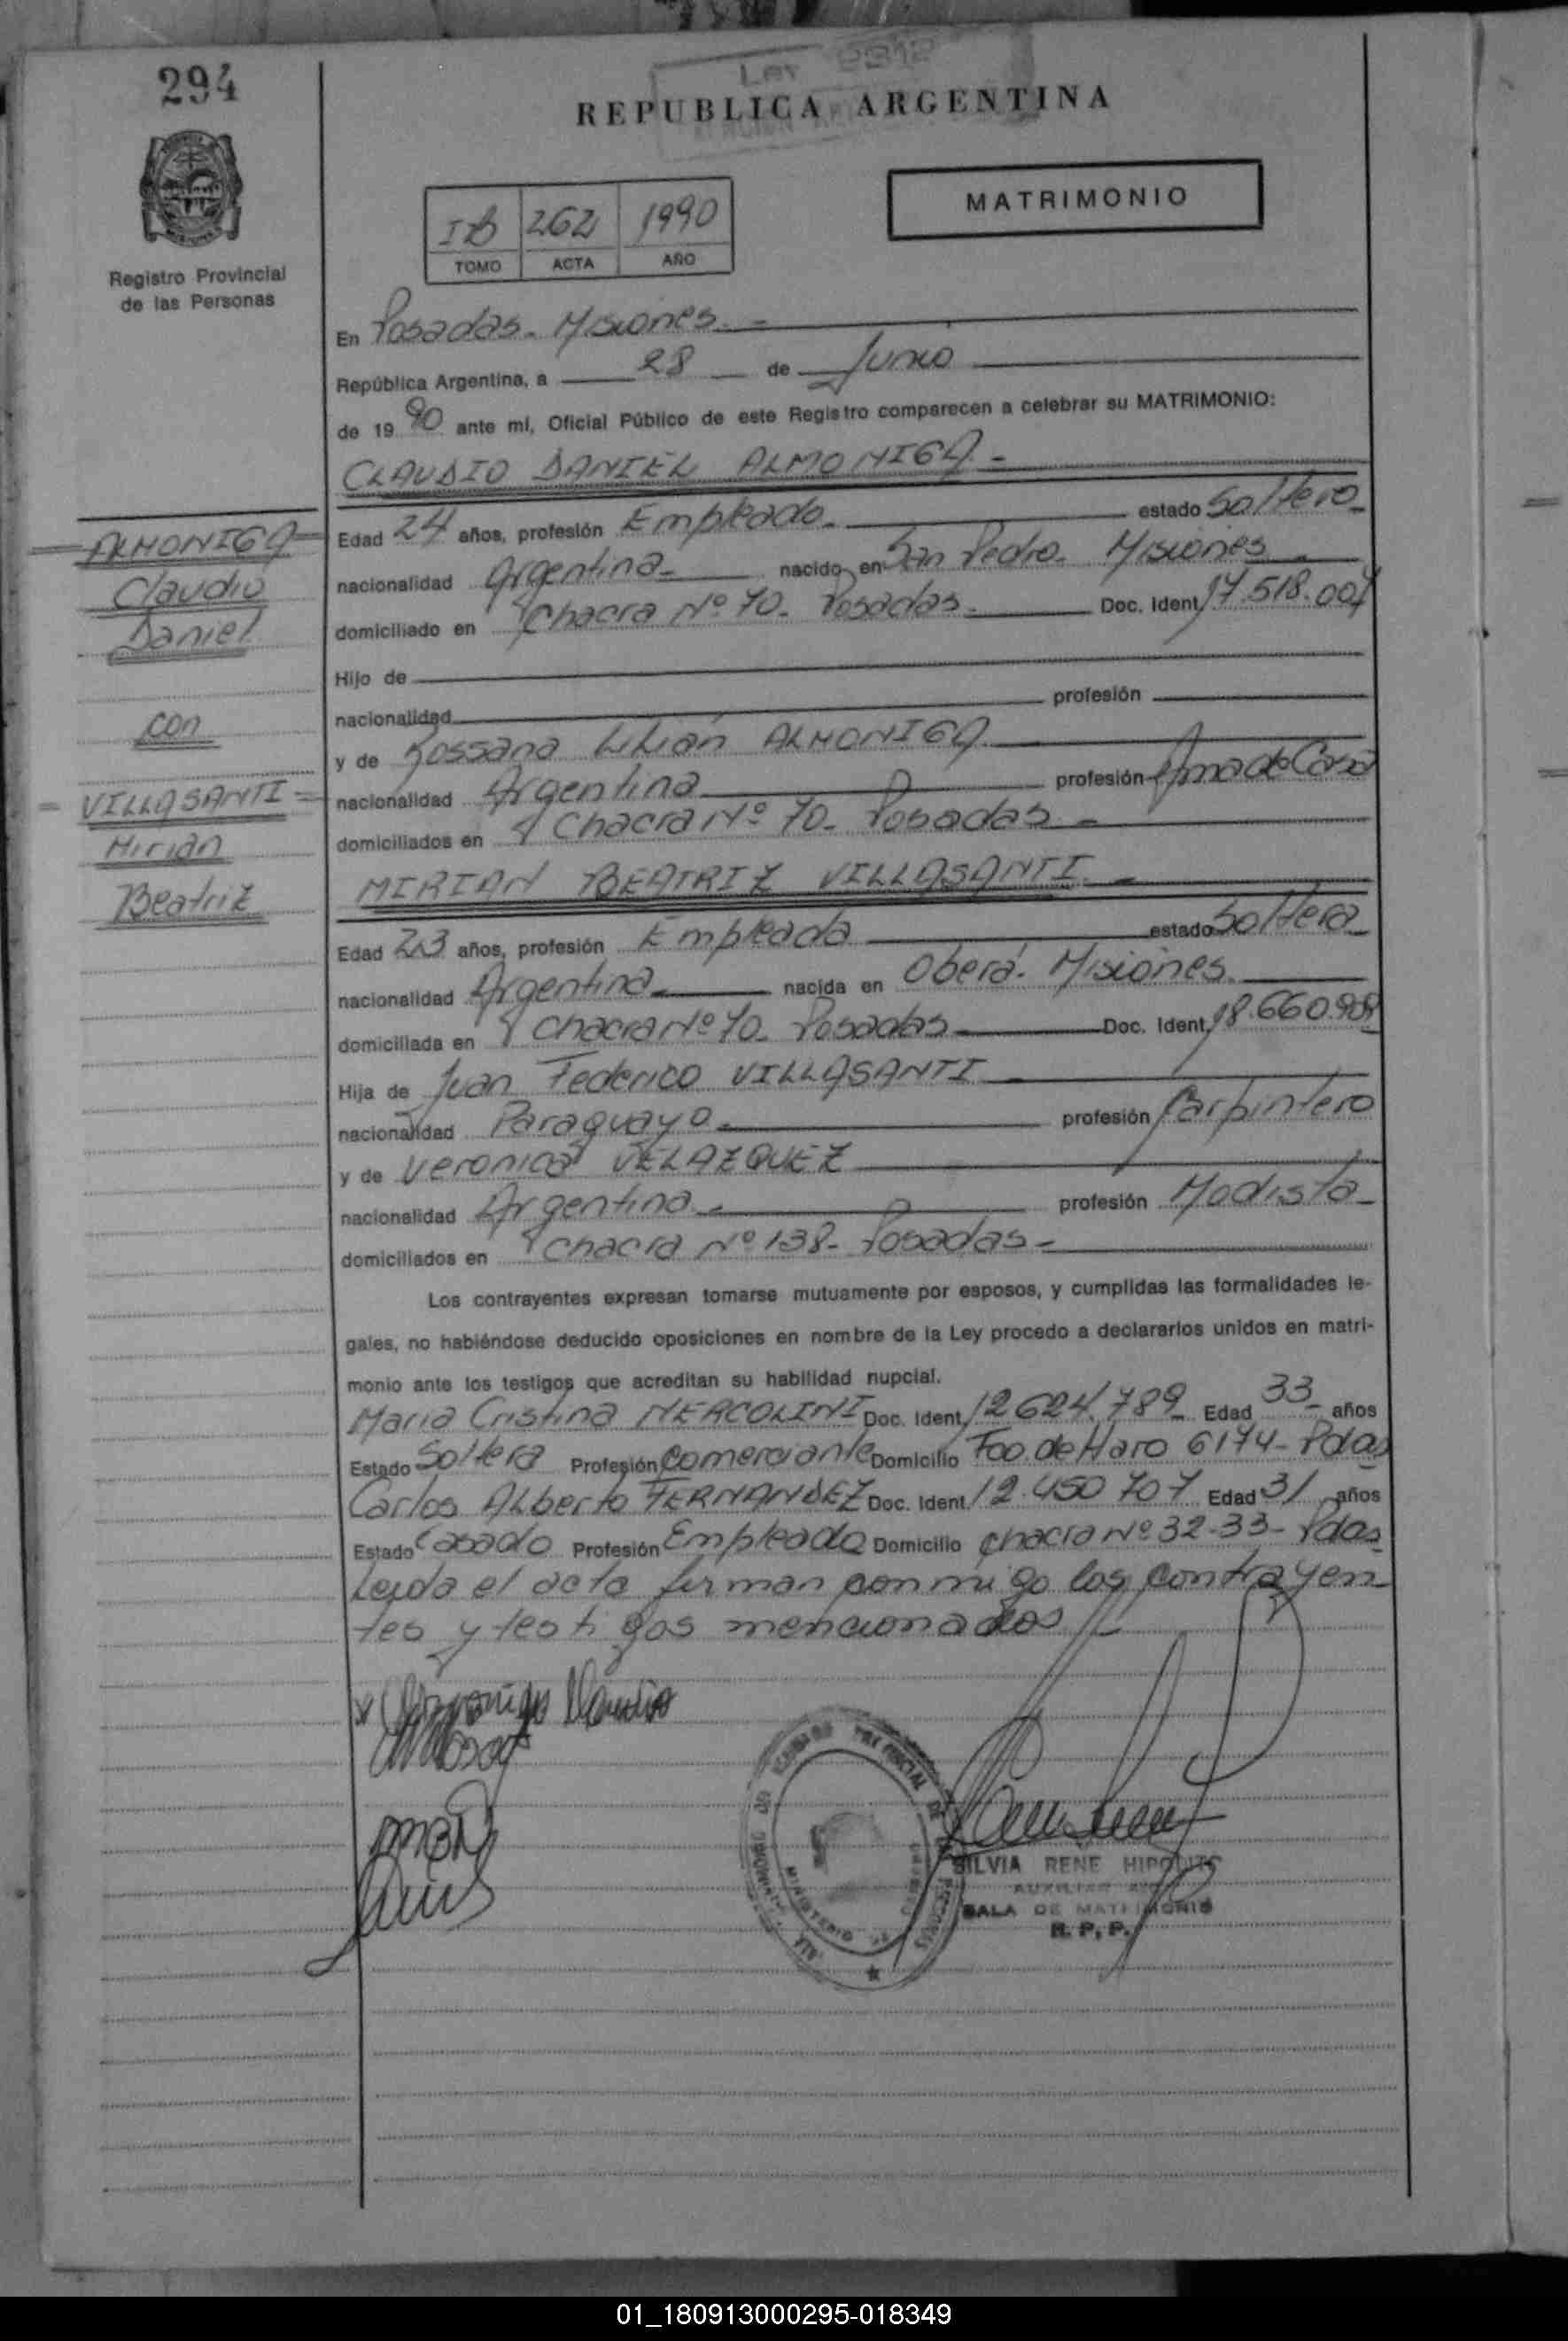 294
LEY 2312
REPUBLICA ARGENTINA
MATRIMONIO
IB 262 1990
TOMO ACTA AÑO
Registro Provincial
de las Personas
En Posadas - Misiones. -
República Argentina, a 28 de Junio
de 1990 ante mí, Oficial Público de este Registro comparecen a celebrar su MATRIMONIO:
CLAUDIO DANIEL ALMONIGA -
Edad 24 años, profesión Empleado. estado Soltero
nacionalidad Argentina - nacido en San Pedro - Misiones
domiciliado en Chacra Nº 70 - Posadas - Doc. Ident. 17.518.007
Hijo de
nacionalidad profesión
y de Rossana Lilián ALMONIGA
nacionalidad Argentina profesión Ama de Casa
domiciliados en Chacra Nº 70 - Posadas -
MIRIAN BEATRIZ VILLASANTI -
Edad 23 años, profesión Empleada estado Soltera
nacionalidad Argentina - nacida en Oberá - Misiones.
domiciliada en Chacra Nº 70 - Posadas Doc. Ident. 18.660.909
Hija de Juan Federico VILLASANTI
nacionalidad Paraguayo profesión Carpintero
y de Veronica VELAZQUEZ
nacionalidad Argentina profesión Modista
domiciliados en Chacra Nº 138 - Posadas -
Los contrayentes expresan tomarse mutuamente por esposos, y cumplidas las formalidades le-
gales, no habiéndose deducido oposiciones en nombre de la Ley procedo a declararlos unidos en matri-
monio ante los testigos que acreditan su habilidad nupcial.
Maria Cristina MERCOLINI Doc. Ident. 12 624 789 Edad 33 años
Estado Soltera Profesión Comerciante Domicilio Fco. de Haro 6174 - Pdas
Carlos Alberto FERNANDEZ Doc. Ident. 12.450 707 Edad 31 años
Estado Casado Profesión Empleado Domicilio Chacra Nº 32-33 - Pdas
Leida el acta firman conmigo los contrayen-
tes y testigos mencionados
ALMONIGA
Claudio
Daniel
con
VILLASANTI
Mirian
Beatriz
Almoniga Claudio
SILVIA RENE HIPOLITO
AUXILIAR
SALA DE MATRIMONIO
R. P. P.
01_180913000295-018349